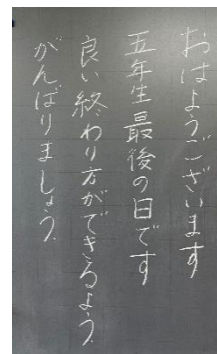 おはようございます
五年生最後の日です
良い終わり方ができるよう
がんばりましょう。